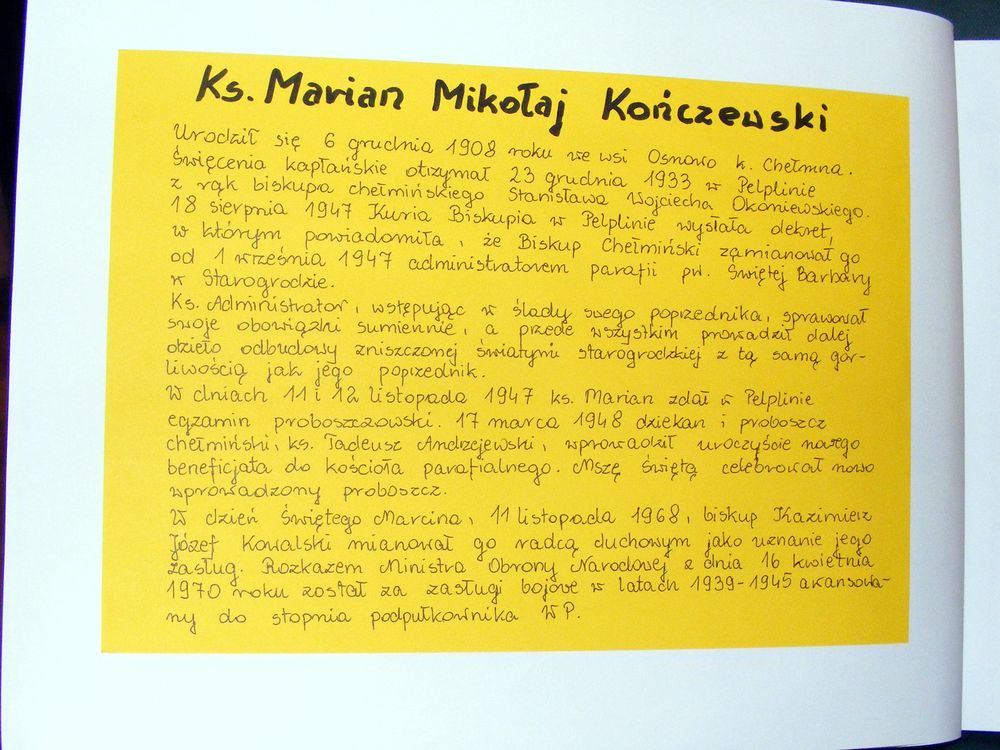 Ks. Marian Mikołaj Kończewski
Urodził się 6 grudnia 1908 roku we wsi Osnowo k. Chełmna.
Święcenia kapłańskie otrzymał 23 grudnia 1933 w Pelplinie
z rąk biskupa chełmińskiego Stanisława Wojciecha Okoniewskiego.
18 sierpnia 1947 Kuria Biskupia w Pelplinie wysłała dekret,
w którym powiadomiła, że Biskup Chełmiński zamianował go
od 1 września 1947 administratorem parafii pw. Świętej Barbary
w Starogrodzie.
Ks. Administrator, wstępując w ślady swego poprzednika, sprawował
swoje obowiązki sumiennie, a przede wszystkim prowadził dalej
dzieło odbudowy zniszczonej świątyni starogrodzkiej z tą samą gor-
liwością jak jego poprzednik.
W dniach 11 i 12 listopada 1947 ks. Marian zdał w Pelplinie
egzamin proboszczowski. 17 marca 1948 dziekan i proboszcz
chełmiński, ks. Tadeusz Andrzejewski, wprowadził uroczyście nowego
beneficjata do kościoła parafialnego. Mszę świętą celebrował nowo
wprowadzony proboszcz.
W dzień Świętego Marcina, 11 listopada 1968, biskup Kazimierz
Józef Kowalski mianował go radcą duchowym jako uznanie jego
zasług. Rozkazem Ministra Obrony Narodowej z dnia 16 kwietnia
1970 roku został za zasługi bojowe w latach 1939-1945 awansowa-
ny do stopnia podpułkownika W P.